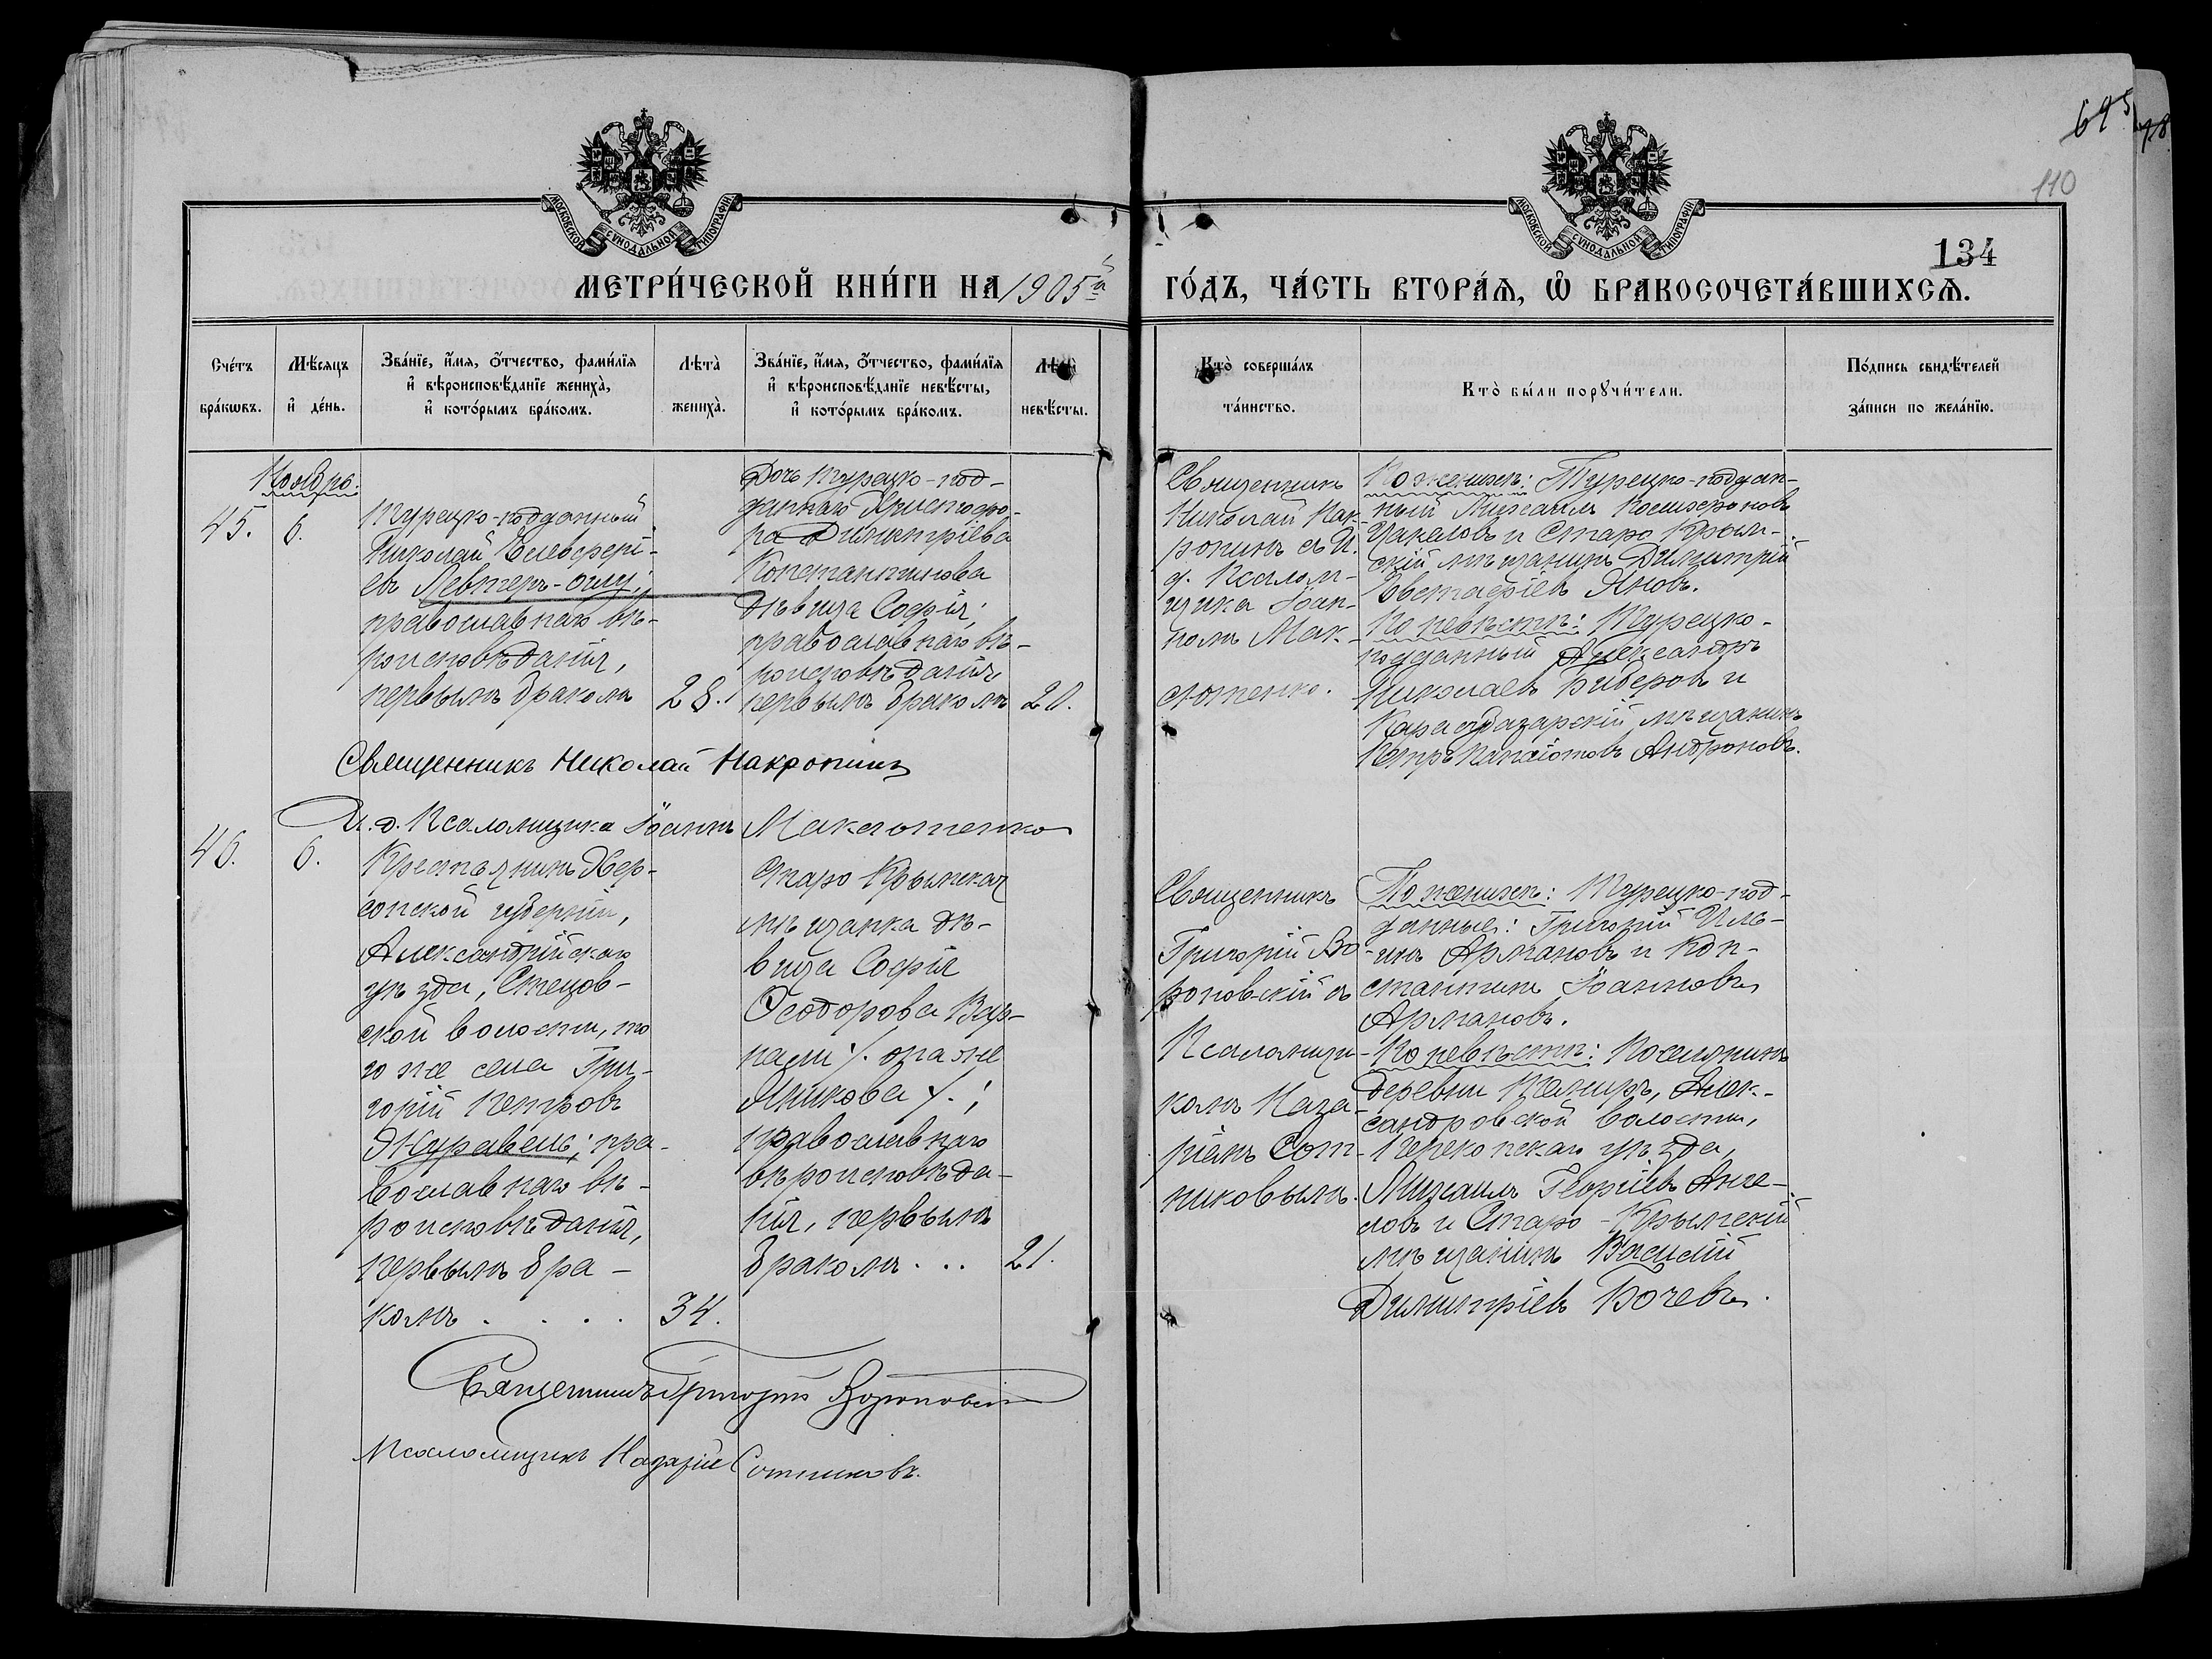 695
78
110
134
МОСКОВСКОЙ СѴНОДАЛЬНОЙ ТИПОГРАФІИ
МОСКОВСКОЙ СѴНОДАЛЬНОЙ ТИПОГРАФІИ
МЕТРИ́ЧЕСКОЙ КНИ́ГИ НА 1905й
ГО́ДЪ, ЧА́СТЬ ВТОРА́Я, Ѡ БРАКОСОЧЕТА́ВШИХСЯ.
Сче́тъ бра́кѡвъ.
Мѣ́сяцъ и҆ де́нь.
Зва́нїе, и҆́мя, ѻ҆́тчество, фамѝлїя
и҆ вѣроисповѣ́данїе женихà,
и҆ кото́рымъ бра́комъ.
Лѣтà женихà.
Зва́нїе, и҆́мя, ѻ҆́тчество, фамѝлїя
и҆ вѣроисповѣ́данїе невѣ́сты,
и҆ кото́рымъ бра́комъ.
Лѣтà невѣ́сты.
Ктò соверша́лъ
та́инство.
Ктò бы́ли порꙋчи́тели.
По́дпись свидѣ́телей
за́писи по жела́нїю.
Ноябрь.
45.
6.
Турецко-подданный
Николай Елевфері-
евъ Левтеръ-оглу;
православнаго вѣ-
роисповѣданія,
первымъ бракомъ
28.
Дочь Турецко-под-
даннаго Христофо-
ра Димитріева
Константинова
дѣвица Софія;
православнаго вѣ-
роисповѣданія
первымъ бракомъ
20.
Священникъ
Николай Нак-
ропинъ съ И.
д. Псалом-
щика Іоан-
номъ Мак-
сютенко.
По женихѣ: Турецко-поддан-
ный Михаилъ
Цакаловъ и Старо Крым-
скій мѣщанинъ Димитрій
Евстафіевъ Яновъ.
По невѣстѣ: Турецко-
подданный Александръ
Николаевъ Биберовъ и
Карасубазарскій мѣщанинъ
Петръ Панаіотовъ Андроновъ.
Священникъ Николай Накропинъ
И. д. Псаломщика Іоаннъ Максютенко
46.
6.
Крестьянинъ Хер-
сонской губерніи,
Александрійскаго
уѣзда, Стецов-
ской волости, то
го же села Гри-
горій Петровъ
Журавель; пра-
вославнаго вѣ-
роисповѣданія,
первымъ бра-
комъ . . . .
34.
Старо Крымская
мѣщанка дѣ-
вица Софія
Ѳеодорова Вар-
она же
православнаго
вѣроисповѣда-
нія, первымъ
бракомъ . . .
21.
Священникъ
Григорій Во
роновскій съ
Псаломщи-
комъ Наза-
ріемъ Сот-
никовымъ.
По женихѣ: Турецко-под-
данные: Григорій Иль-
инъ Армановъ и Кон-
стантинъ Іоанновъ
Армановъ.
По невѣстѣ: Поселянинъ
деревни Алек-
сандровской волости,
Перекопскаго уѣзда,
Михаилъ Георгіевъ Анге-
ловъ и Старо-Крымскій
мѣщанинъ Василій
Димитріевъ Бочевъ.
Священникъ Григорій Вороновскій
Псаломщикъ Назарій Сотниковъ.